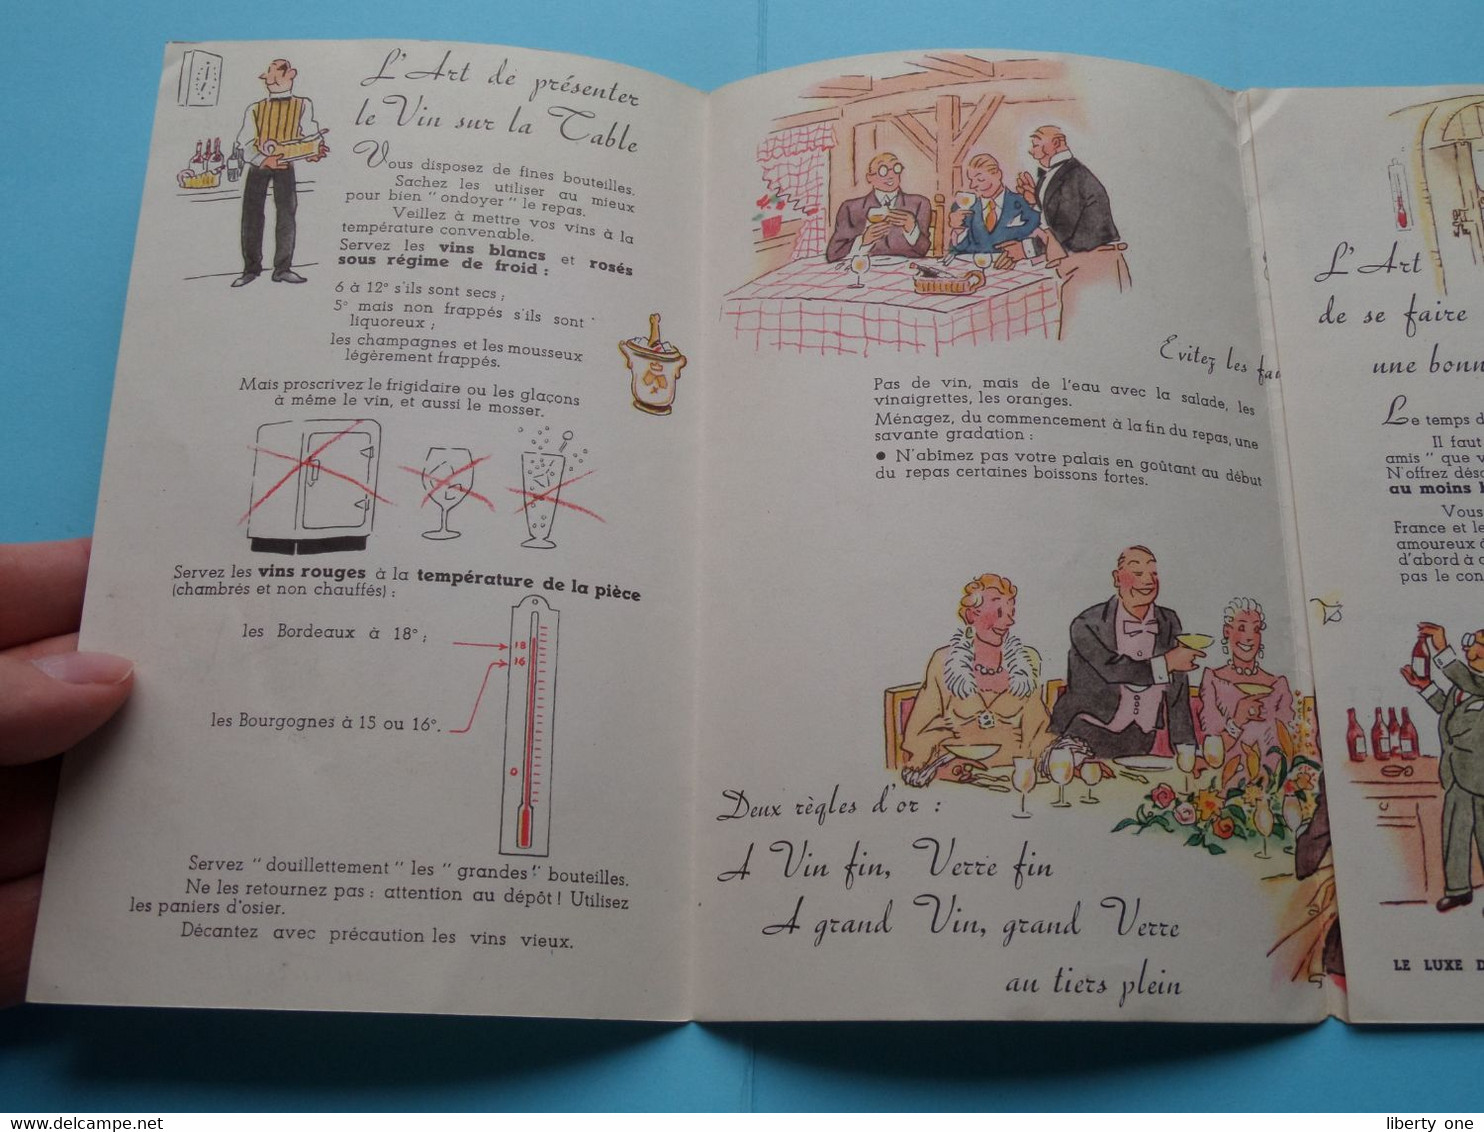 L'Art de présenter
le Vin sur la Table
Vous disposez de fines bouteilles.
Sachez les utiliser au mieux
pour bien " ondoyer " le repas.
Veillez à mettre vos vins à la
température convenable.
Servez les vins blancs et rosés
sous régime de froid :
6 à 12° s'ils sont secs ;
5° mais non frappés s'ils sont
liquoreux ;
les champagnes et les mousseux
légèrement frappés.
Mais proscrivez le frigidaire ou les glaçons
à même le vin, et aussi le mosser.
Servez les vins rouges à la température de la pièce
(chambrés et non chauffés) :
les Bordeaux à 18° ;
18
16
les Bourgognes à 15 ou 16°.
0
Servez " douillettement " les " grandes " bouteilles.
Ne les retournez pas : attention au dépôt ! Utilisez
les paniers d'osier.
Décantez avec précaution les vins vieux.
Evitez les fau
Pas de vin, mais de l'eau avec la salade, les
vinaigrettes, les oranges.
Ménagez, du commencement à la fin du repas, une
savante gradation :
● N'abîmez pas votre palais en goûtant au début
du repas certaines boissons fortes.
Deux règles d'or :
A Vin fin, Verre fin
A grand Vin, grand Verre
au tiers plein
L'Art
de se faire
une bonn
Le temps d
Il faut
amis " que v
N'offrez déso
au moins
Vous
France et le
amoureux à
d'abord à
pas le con
LE LUXE D
liberty one